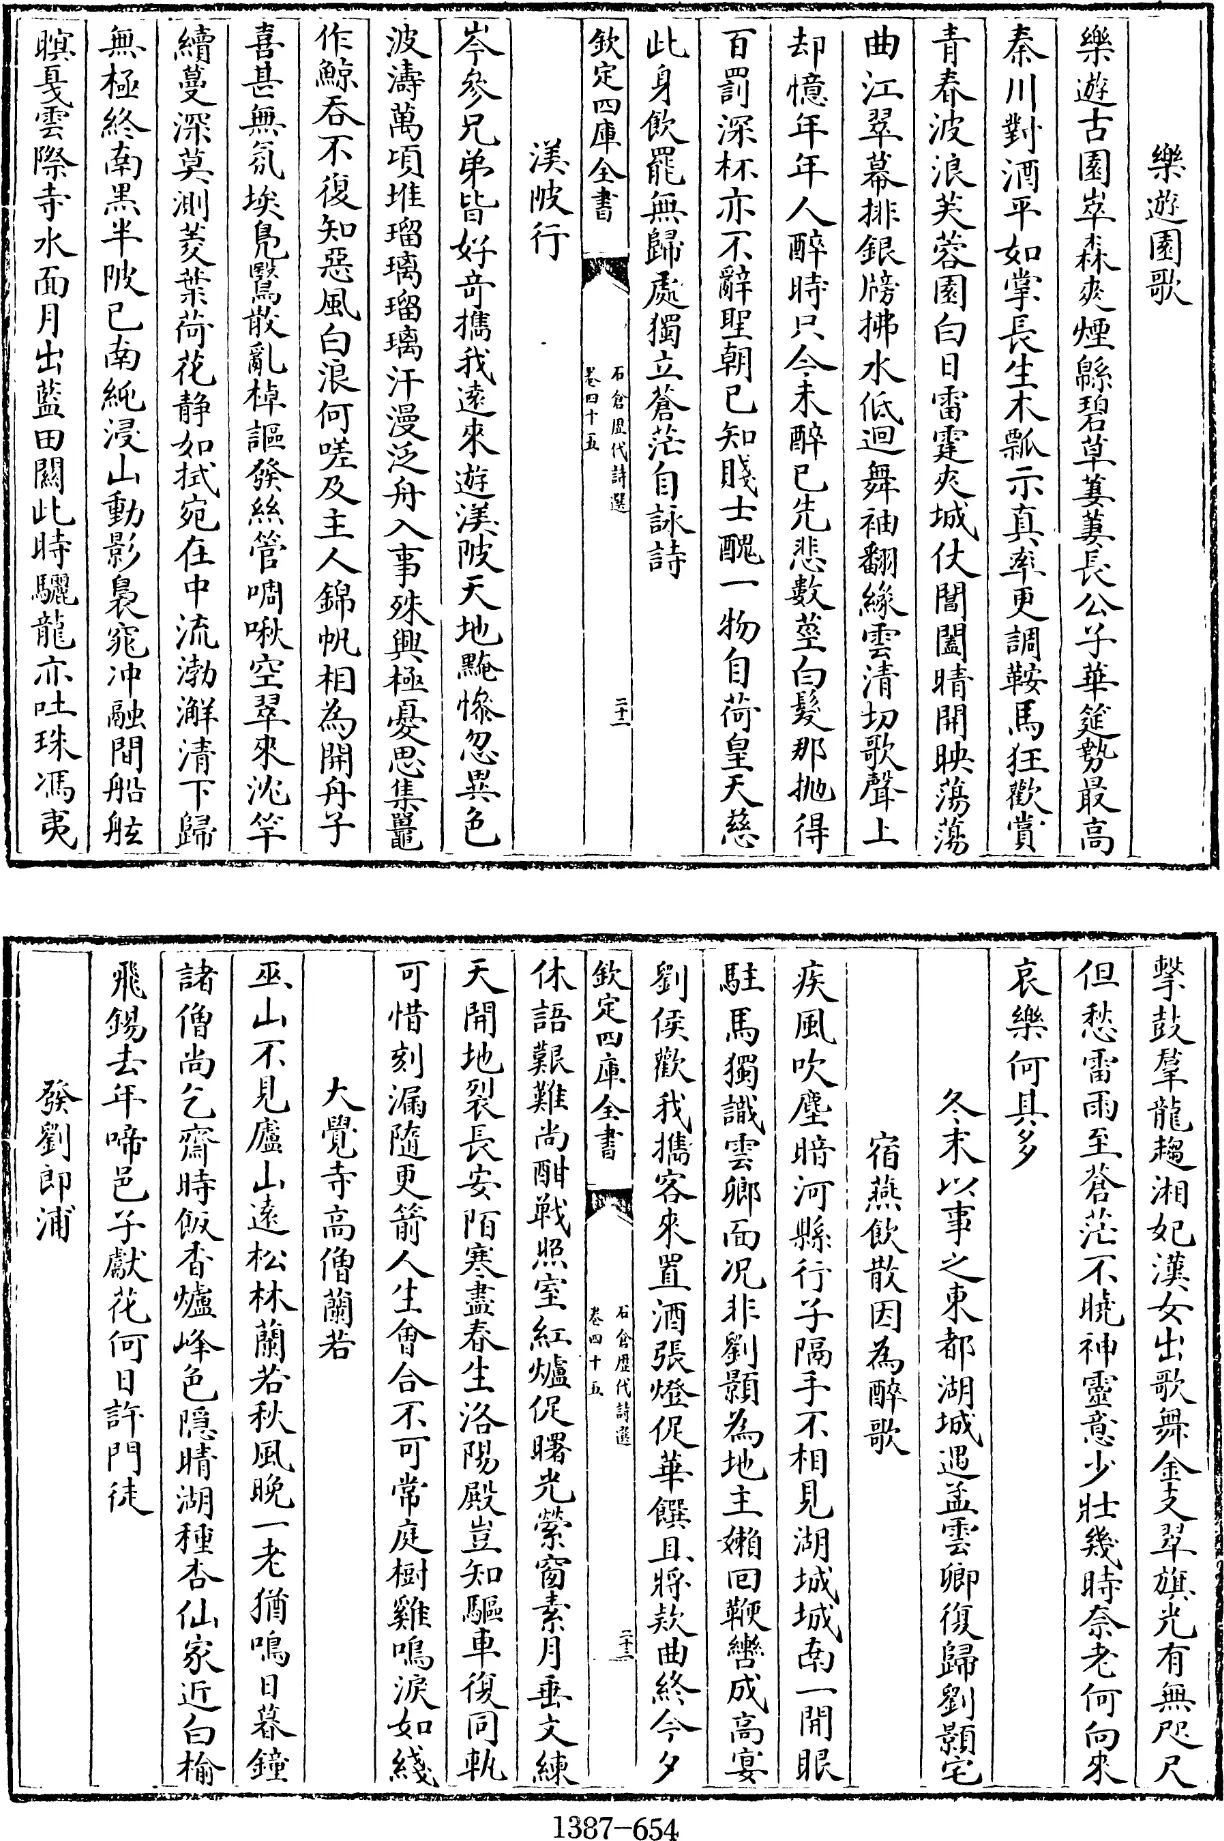 樂遊園歌
樂遊古園崒森爽煙緜碧草萋萋長公子華筵勢最高
秦川對酒平如掌長生木瓢示真率更調鞍馬狂歡賞
青春波浪芙蓉園白日雷霆夾城仗閶闔晴開映蕩蕩
曲江翠幕排銀牓拂水低迴舞袖翻緣雲清切歌聲上
却憶年年人醉時只今未醉已先悲數莖白髮那抛得
百罰深杯亦不辭聖朝已知賤士醜一物自荷皇天慈
此身飲罷無歸處獨立蒼茫自詠詩
欽定四庫全書
石倉歷代詩選
卷四十五
二十二
渼陂行
岑參兄弟皆好奇攜我遠來遊渼陂天地黤慘忽異色
波濤萬頃堆瑠璃瑠璃汗漫泛舟入事殊興極憂思集鼉
作鯨吞不復知惡風白浪何嗟及主人錦帆相為開舟子
喜甚無氛埃鳧鷖散亂棹謳發絲管啁啾空翠來沈竿
續蔓深莫測菱葉荷花静如拭宛在中流渤澥清下歸
無極終南黑半陂已南純浸山動影裊窕冲融間船舷
暝戛雲際寺水面月出藍田關此時驪龍亦吐珠馮夷
擊鼓羣龍趨湘妃漢女出歌舞金支翠旗光有無咫尺
但愁雷雨至蒼茫不曉神靈意少壯幾時奈老何向來
哀樂何其多
冬末以事之東都湖城遇孟雲卿復歸劉顥宅
宿燕飲散因為醉歌
疾風吹塵暗河縣行子隔手不相見湖城城南一開眼
駐馬獨識雲卿面况非劉顥為地主嬾回鞭轡成高宴
劉侯歡我攜客來置酒張燈促華饌且將欵曲終今夕
欽定四庫全書
石倉歷代詩選
卷四十五
二十三
休語艱難尚酣戰照室紅爐促曙光縈窗素月垂文練
天開地裂長安陌寒盡春生洛陽殿豈知驅車復同軌
可惜刻漏隨更箭人生會合不可常庭樹雞鳴淚如綫
大覺寺高僧蘭若
巫山不見廬山遠松林蘭若秋風晚一老猶鳴日暮鐘
諸僧尚乞齋時飯香爐峰色隱晴湖種杏仙家近白榆
飛錫去年啼邑子獻花何日許門徒
發劉郎浦
1387-654